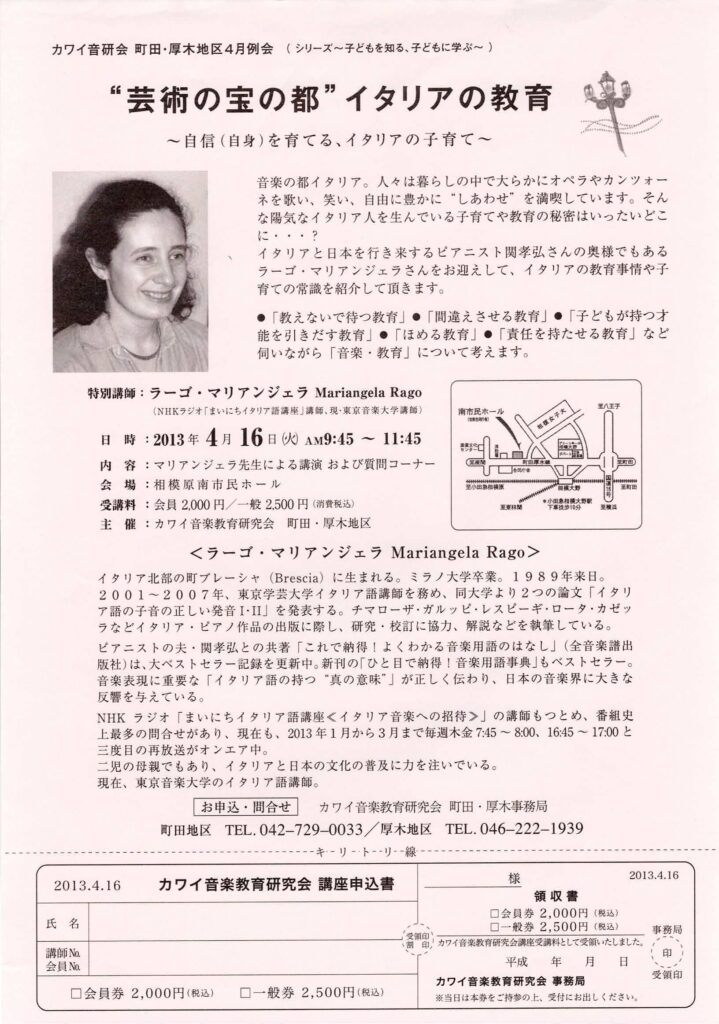 カワイ音研会 町田・厚木地区4月例会 ( シリーズ〜子どもを知る、子どもに学ぶ〜 )
“芸術の宝の都”イタリアの教育
〜自信(自身)を育てる、イタリアの子育て〜
音楽の都イタリア。人々は暮らしの中で大らかにオペラやカンツォー
ネを歌い、笑い、自由に豊かに“しあわせ”を満喫しています。そん
な陽気なイタリア人を生んでいる子育てや教育の秘密はいったいどこ
に・・・?
イタリアと日本を行き来するピアニスト関孝弘さんの奥様でもある
ラーゴ・マリアンジェラさんをお迎えして、イタリアの教育事情や子
育ての常識を紹介して頂きます。
●「教えないで待つ教育」●「間違えさせる教育」●「子どもが持つ才
能を引きだす教育」●「ほめる教育」●「責任を持たせる教育」など
伺いながら「音楽・教育」について考えます。
特別講師：ラーゴ・マリアンジェラ Mariangela Rago
(NHKラジオ「まいにちイタリア語講座」講師、現・東京音楽大学講師)
日 時：2013年 4月 16日(火) AM9:45 〜 11:45
内 容：マリアンジェラ先生による講演 および質問コーナー
会 場：相模原南市民ホール
受講料：会員 2,000円／一般 2,500円(消費税込)
主 催：カワイ音楽教育研究会 町田・厚木地区
南市民ホール
相模女子大
至八王子
至座間
町田厚木線
至町田
合同庁舎
国道16号
至小田急相模原
相模大野
至町田
至東林間
*小田急相模大野駅
下車徒歩10分
至横浜
＜ラーゴ・マリアンジェラ Mariangela Rago＞
イタリア北部の町ブレーシャ(Brescia)に生まれる。ミラノ大学卒業。1989年来日。
2001〜2007年、東京学芸大学イタリア語講師を務め、同大学より2つの論文「イタリ
ア語の子音の正しい発音I・II」を発表する。チマローザ・ガルッピ・レスピーギ・ロータ・カゼッ
ラなどイタリア・ピアノ作品の出版に際し、研究・校訂に協力、解説などを執筆している。
ピアニストの夫・関孝弘との共著「これで納得！よくわかる音楽用語のはなし」(全音楽譜出
版社)は、大ベストセラー記録を更新中。新刊の「ひと目で納得！音楽用語事典」もベストセラー。
音楽表現に重要な「イタリア語の持つ“真の意味”」が正しく伝わり、日本の音楽界に大きな
反響を与えている。
NHK ラジオ「まいにちイタリア語講座≪イタリア音楽への招待≫」の講師もつとめ、番組史
上最多の問合せがあり、現在も、2013年1月から3月まで毎週木金7:45〜8:00、16:45〜17:00と
三度目の再放送がオンエア中。
二児の母親でもあり、イタリアと日本の文化の普及に力を注いでいる。
現在、東京音楽大学のイタリア語講師。
お申込・問合せ カワイ音楽教育研究会 町田・厚木事務局
町田地区 TEL.042–729–0033／厚木地区 TEL.046–222–1939
キリトリ線
2013.4.16 カワイ音楽教育研究会 講座申込書
氏 名
講師No.
会員No.
□会員券 2,000円(税込) □一般券 2,500円(税込)
受領印
割 印
様 2013.4.16
領収書
□会員券 2,000円(税込)
□一般券 2,500円(税込)
カワイ音楽教育研究会講座受講料として受領いたしました。
平成 年 月 日
カワイ音楽教育研究会 事務局
※当日は本券をご持参の上、受付にお出しください。
事務局
印
受領印